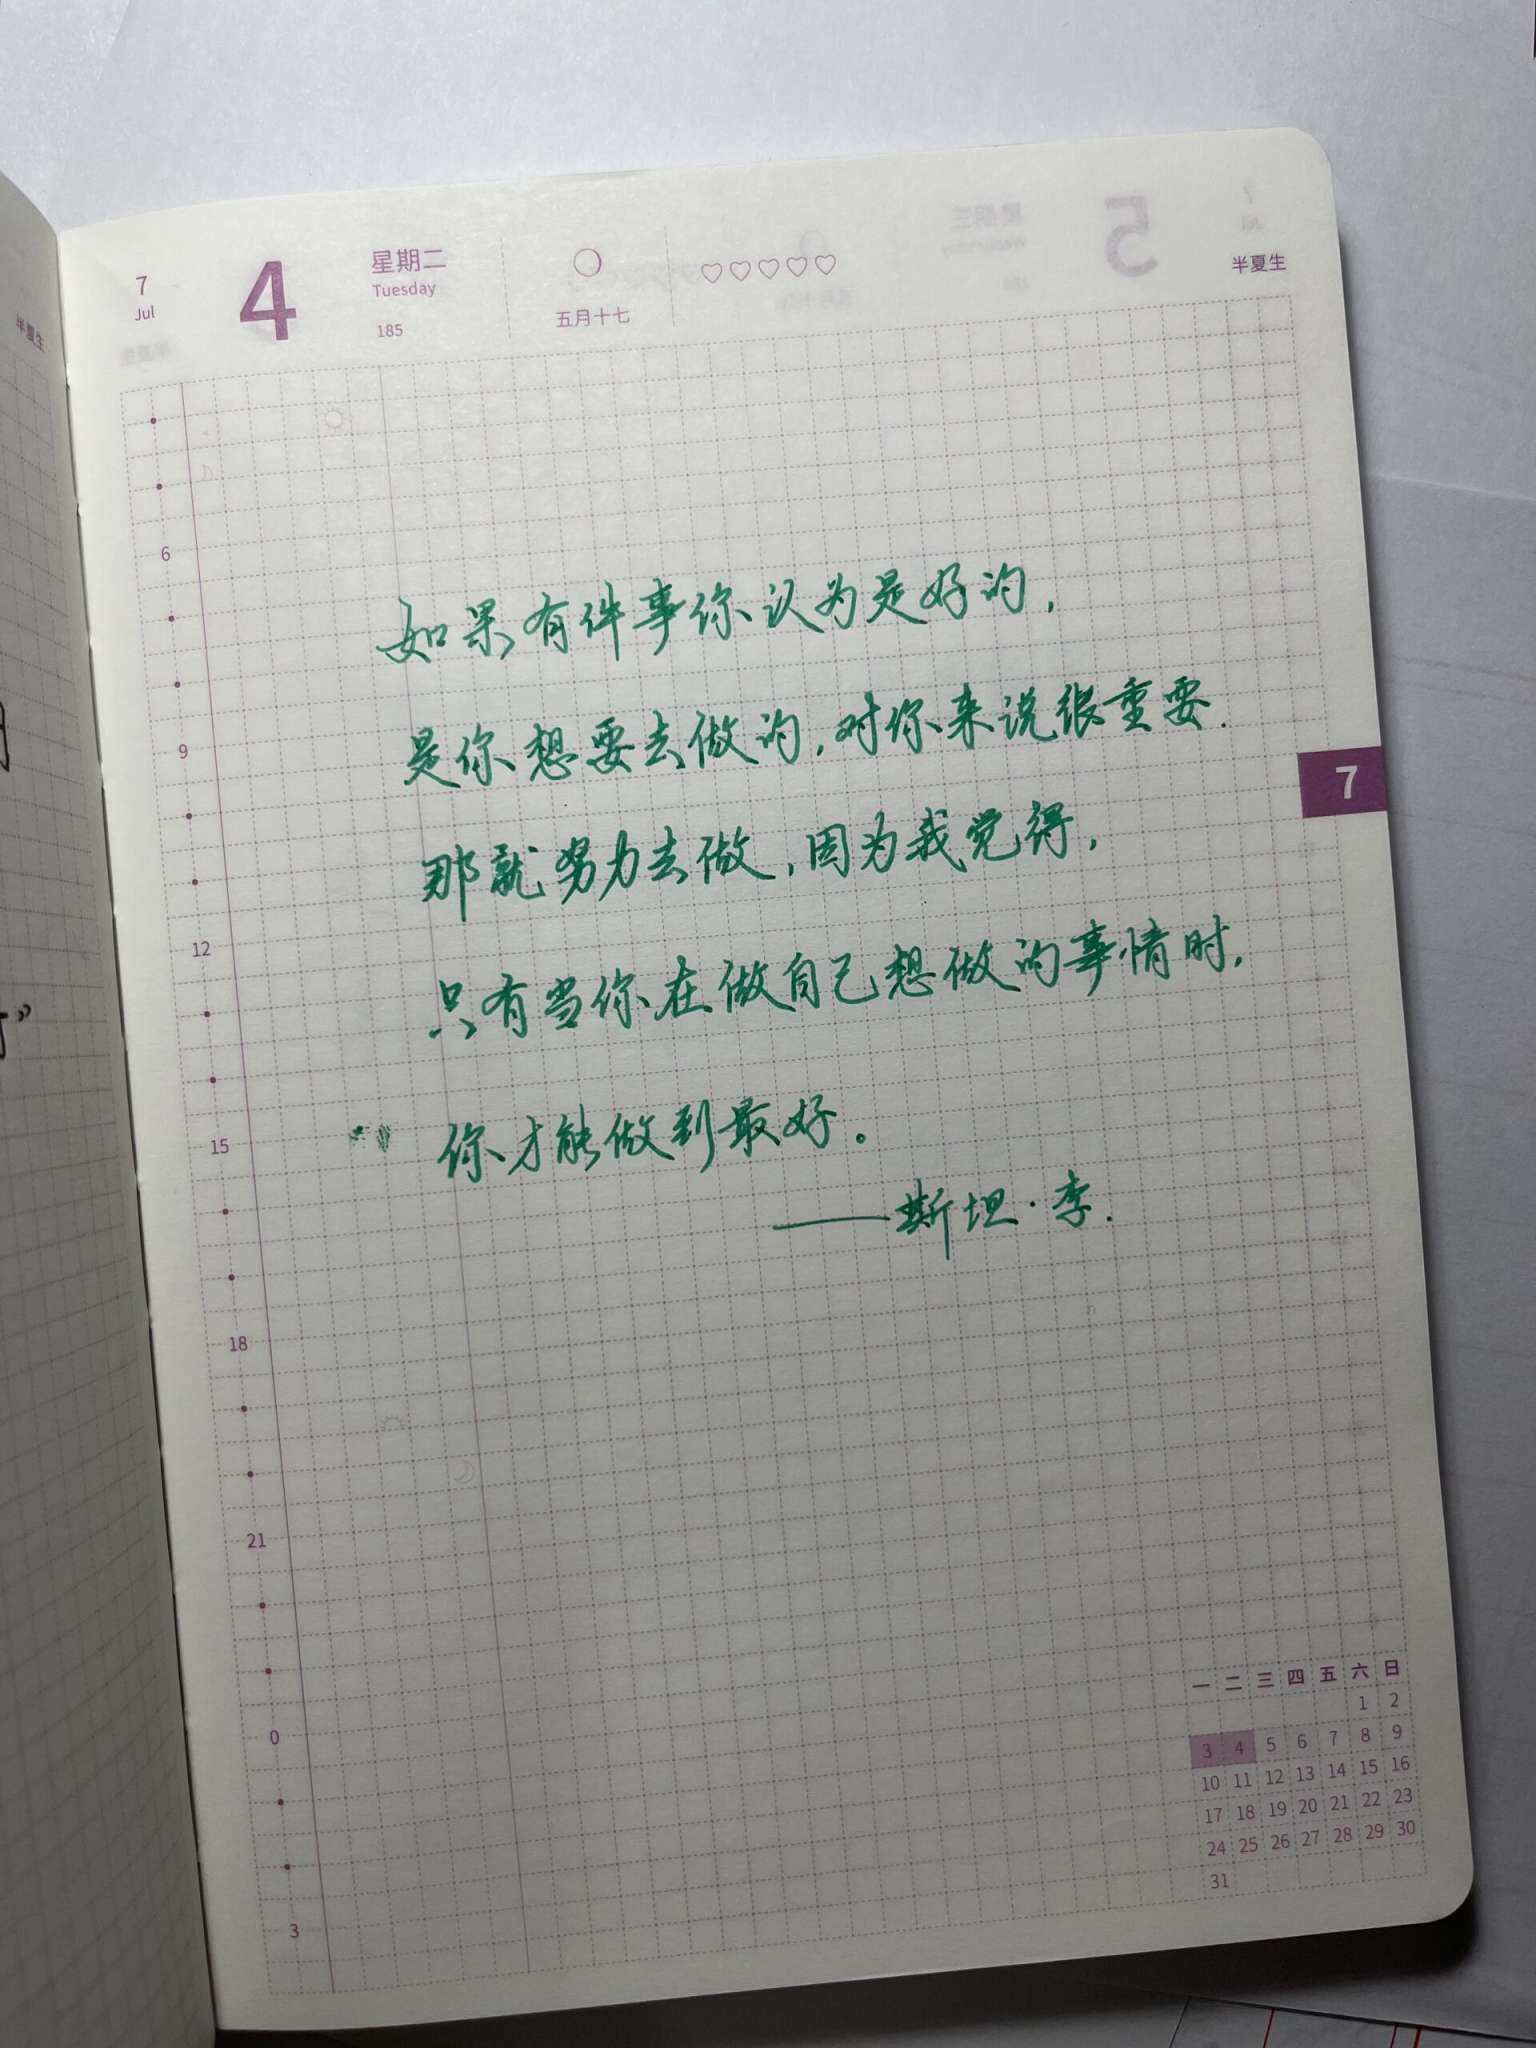 7
Jul
4
星期二
Tuesday
185
五月十七
半夏生
半夏生
6
如果有件事你认为是好的，
是你想要去做的，对你来说很重要.
9
7
那就努力去做，因为我觉得，
12
只有当你在做自己想做的事情时，
15
你才能做到最好。
——斯坦·李.
18
21
0
3
一 二 三 四 五 六 日
1 2
3 4 5 6 7 8 9
10 11 12 13 14 15 16
17 18 19 20 21 22 23
24 25 26 27 28 29 30
31